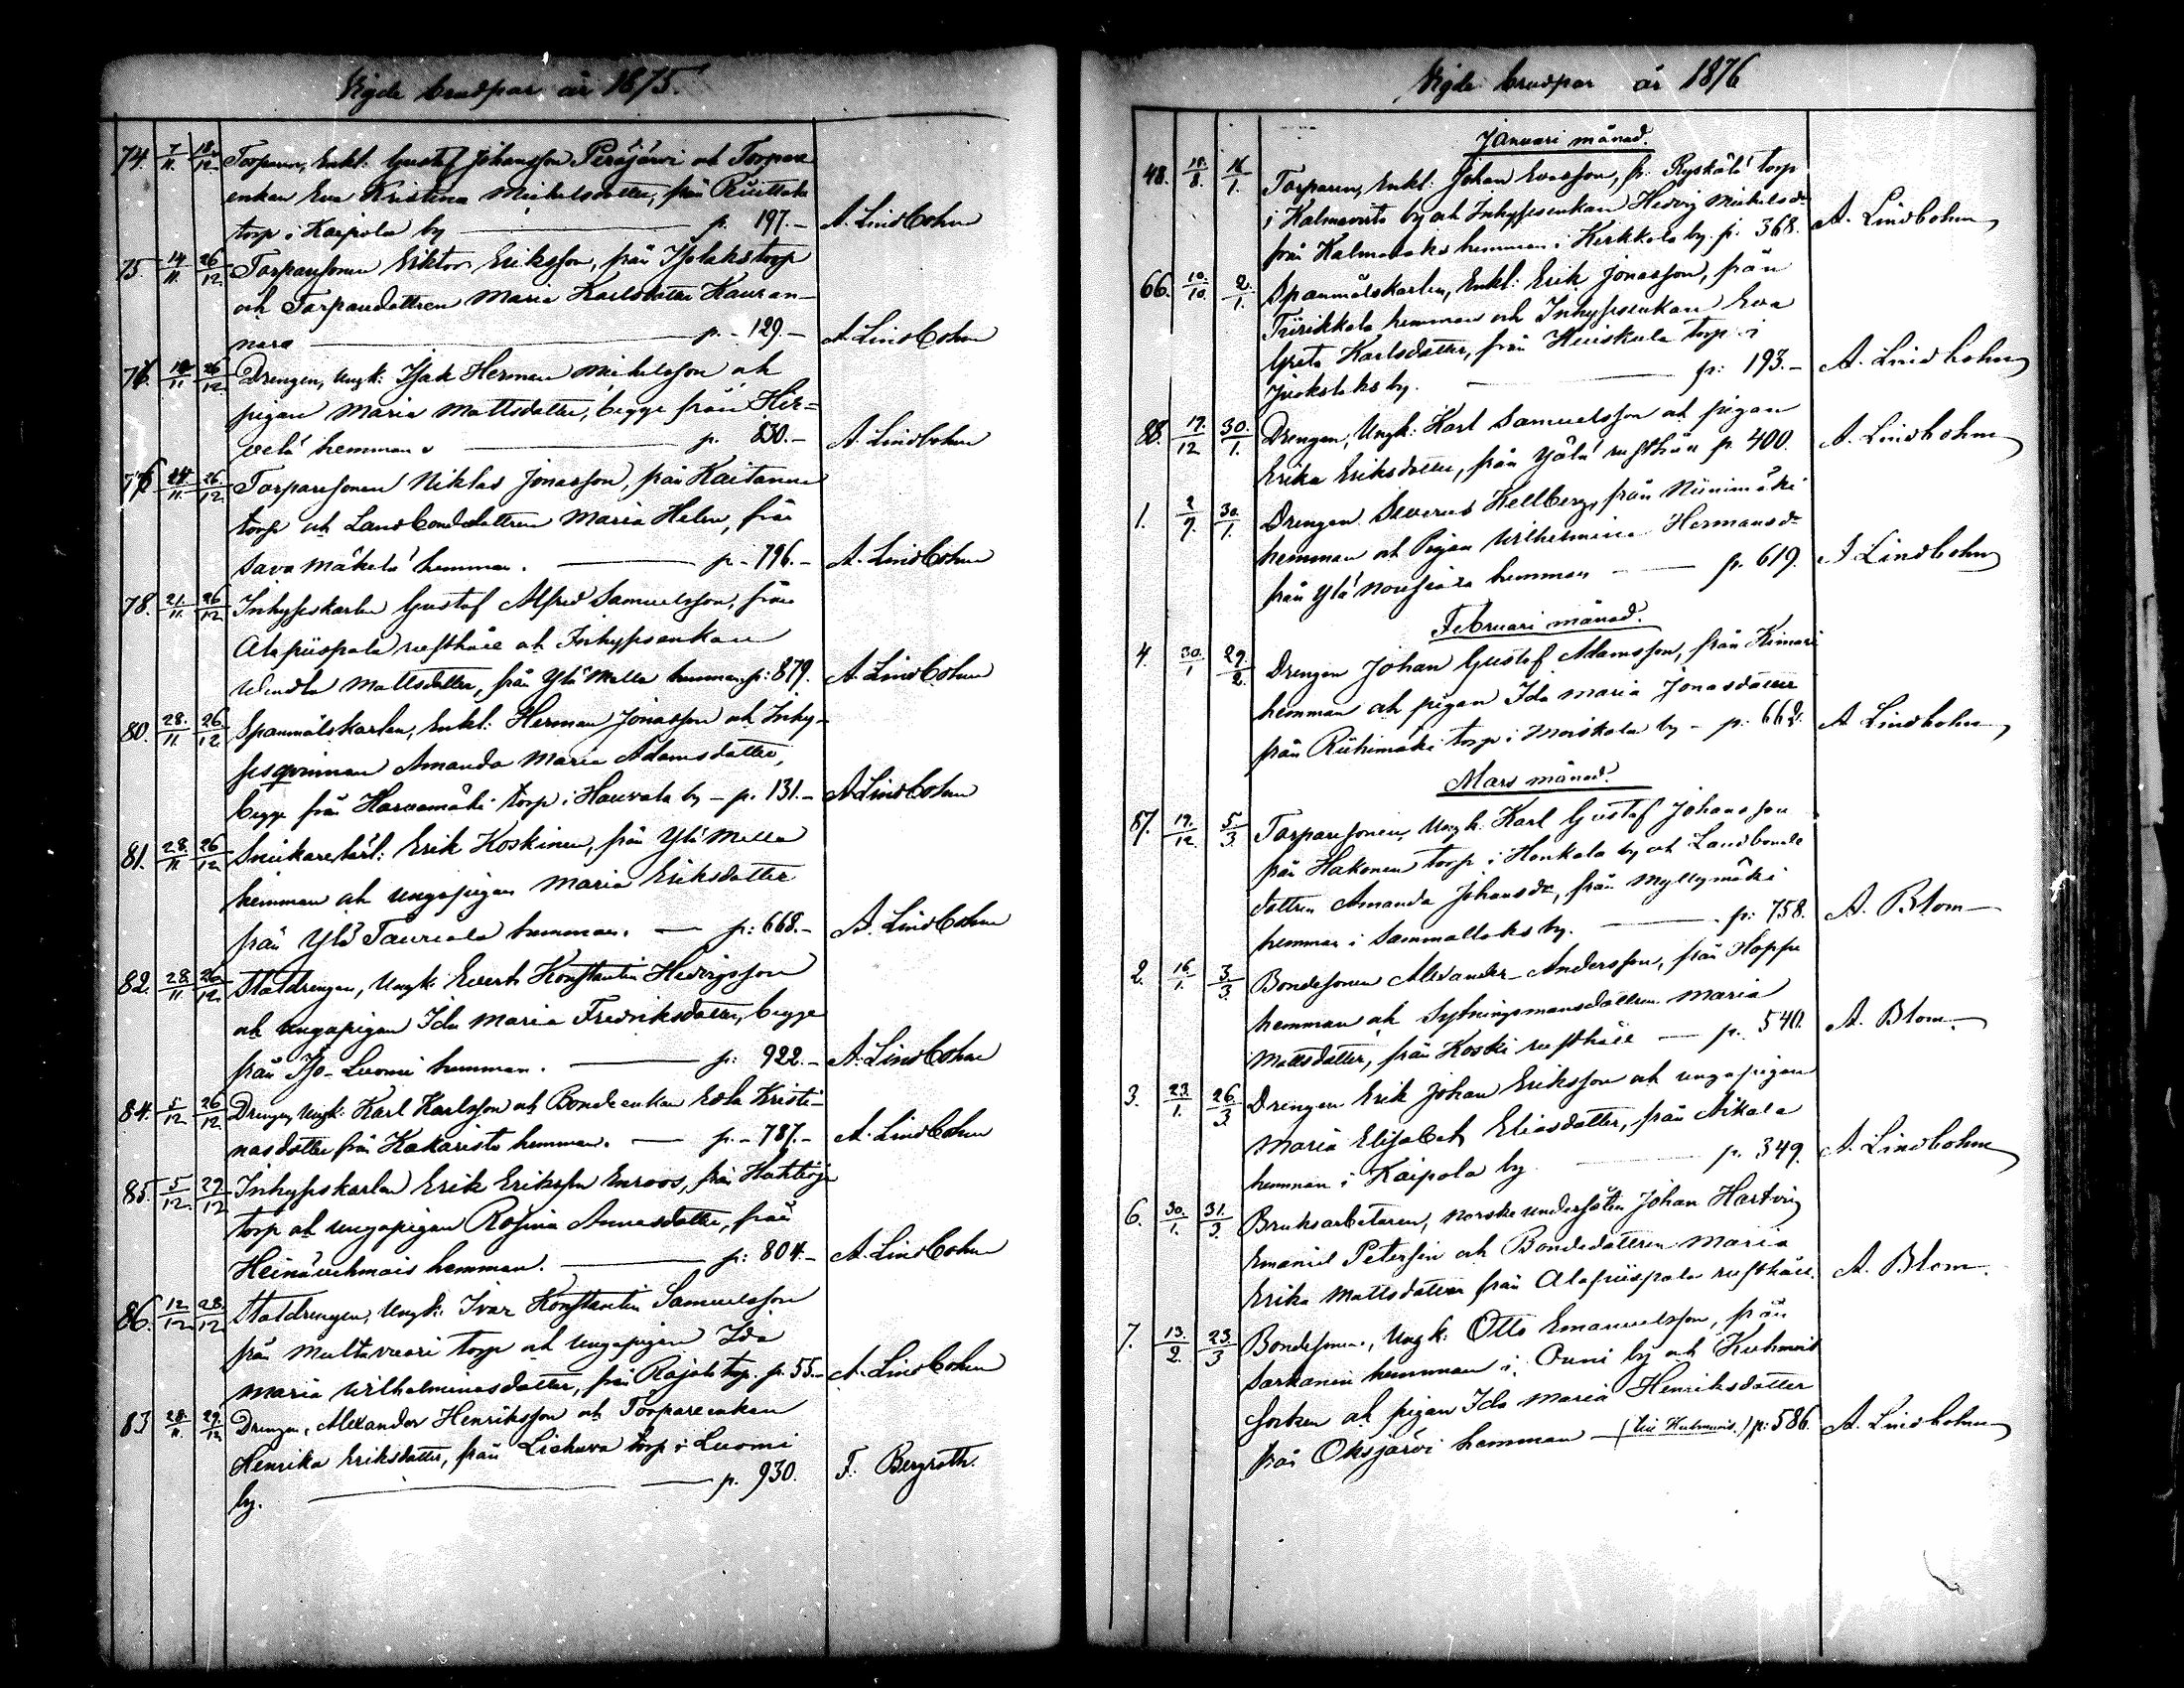 Vigde brudpar år 1875.
74. 7/11. 18/12. Torparen, Enkl. Gustaf Johansson Peräjärvi och Torpare
enkan Eva Kristina Michelsdotter, från
torp i Kaipola by p. 197.– A. Lindbohm
75. 14/11. 26/12. Torparesonen Viktor Eriksson, från Isolakstorp
och Torparedottren Maria Karlsdotter Kauran-
nara p. 129.– A. Lindbohm
76. 14/11 26/12. Drengen, Ungk: Isak Herman Mikelsson och
pigan Maria Mattsdotter, begge från Her=
velä hemman p. 830.– A. Lindbohm
77. 24/11. 26/12. Torparesonen Niklas Jonasson, från Kaitanen
torp och Landbondedottren Maria Helen, från
Sava Mäkelä hemman. p. 796.– A. Lindbohm
78. 21/11. 26/12 Inhyseskarlen Gustaf Alfred Samuelsson, från
Alapiispala rusthåll och Inhysenkan
Wendla Mattsdotter, från Ylä Mella hemman p: 879. A. Lindbohm
80. 28./11. 26/12. Spanmålskarlen, Enkl: Herman Jonasson och Inhy-
sesqvinnan Amanda Maria Adamsdotter,
begge från Harvamäki torp i Hauvala by – p. 131.– A. Lindbohm
81. 28./11 26/12 Snickarelärl: Erik Koskinen, från Ylä Mella
hemman och ungapigan Maria Eriksdotter
från Ylä Tauriala hemman. p: 668.– A. Lindbohm
82. 28/11. 26/12. Statdrengen, Ungk: Evert Konstantin Hedvigsson
och ungapigan Ida Maria Fredriksdotter, begge
från Iso-Luomi hemman. p: 922.– A. Lindbohm
84. 5/12 26/12 Drengen, Ungk: Karl Karlsson och Bondeenkan Edla Kristi-
nasdotter från Kakaristo hemman. p. – 787.– A. Lindbohm
85. 5/12. 29/12 Inhyseskarlen Erik Eriksson Enroos, från
torp och ungapigan Rosina Annasdotter, från
hemman. p: 804.– A. Lindbohm
86. 12/12 28/12 Statdrengen, Ungk: Ivar Konstantin Samuelsson
från Multavuori torp och Ungapigan Ida
Maria Wilhelminasdotter, från Rajala torp. p. 55.– A. Lindbohm
83 28/11. 29/12 Drengen, Alexander Henriksson och Torpareenkan
Henrika Eriksdotter, från Liehuva torp i Luomi
by. p. 930. F. Bergroth.
Vigde brudpar år 1876
Januari månad.
48. 15/8. 16/1. Torparen, Enkl: Johan Evasson, fr. Ryskälä torp
i by och Inhysesenkan Hedvig Michelsdr
från hemman i Kirkkola by. p. 368. A. Lindbohm
66. 10./10. 2/1. Spanmålskarlen, Enkl: Erik Jonasson, från
Tiirikkala hemman och Inhysesenkan Eva
Greta Karlsdotter, från Heiskala torp i
by. p: 193.– A. Lindbohm
88. 17./12 30./1. Drengen, Ungk: Karl Samuelsson och pigan
Erika Eriksdotter, från Yölä rusthåll p. 400. A. Lindbohm
1. 2/7. 30./1. Drengen Severus Hellberg, från Niinimäki
hemman och Pigan Wilhelmina Hermansdr
från Ylä Nousiala hemman p. 619. A Lindbohm
Februari månad.
4. 30./1 29./2. Drengen Johan Gustaf Adamsson, från Kimari
hemman och pigan Ida Maria Jonasdotter
från Riihimäki torp i Moiskala by – p. 662. A Lindbohm
Mars månad.
87. 19./12. 5/3. Torparesonen, Ungk: Karl Gustaf Johansson
från Hakonen torp i Honkala by och Landbonde
dottren Amanda Johansdr, från Myllymäki
hemman i Sammallaks by. p: 758. A. Blom
2. 16/1. 3/3. Bondesonen Alexander Andersson, från Hoppe
hemman och Sytningsmansdottren Maria
Mattsdotter, från Koski rusthåll p. 540. A. Blom
3. 23/1. 26./3. Drengen Erik Johan Eriksson och ungapigan
Maria Elisabet Eliasdotter, från Aikala
hemman i Kaipola by p. 349. A. Lindbohm
6. 30./1. 31./3. Bruksarbetaren, norske undersåten Johan Hartvig
Emanuel Petersen och Bondedottren Maria
Erika Mattsdotter från Alapiispala rusthåll. A. Blom.
7. 13./2. 23./3 Bondesonen, Ungk: Otto Emanuelsson, från
Sarkanen hemman i Onni by och Kuhmois
socken och pigan Ida Maria Henriksdotter
från Oksjärvi hemman – (till Kuhmois.) p: 586. A. Lindbohm